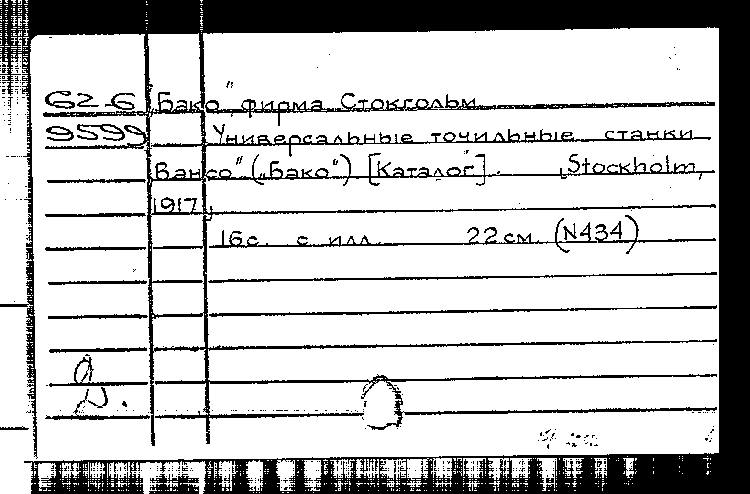 62-6 "Бако", фирма. Стокгольм.
9599 Универсальные точильные станки
"Bahco" („Бако“) [Каталог]. Stockholm,
1917.
16 с. с илл. 22 см. (N434)
Д.